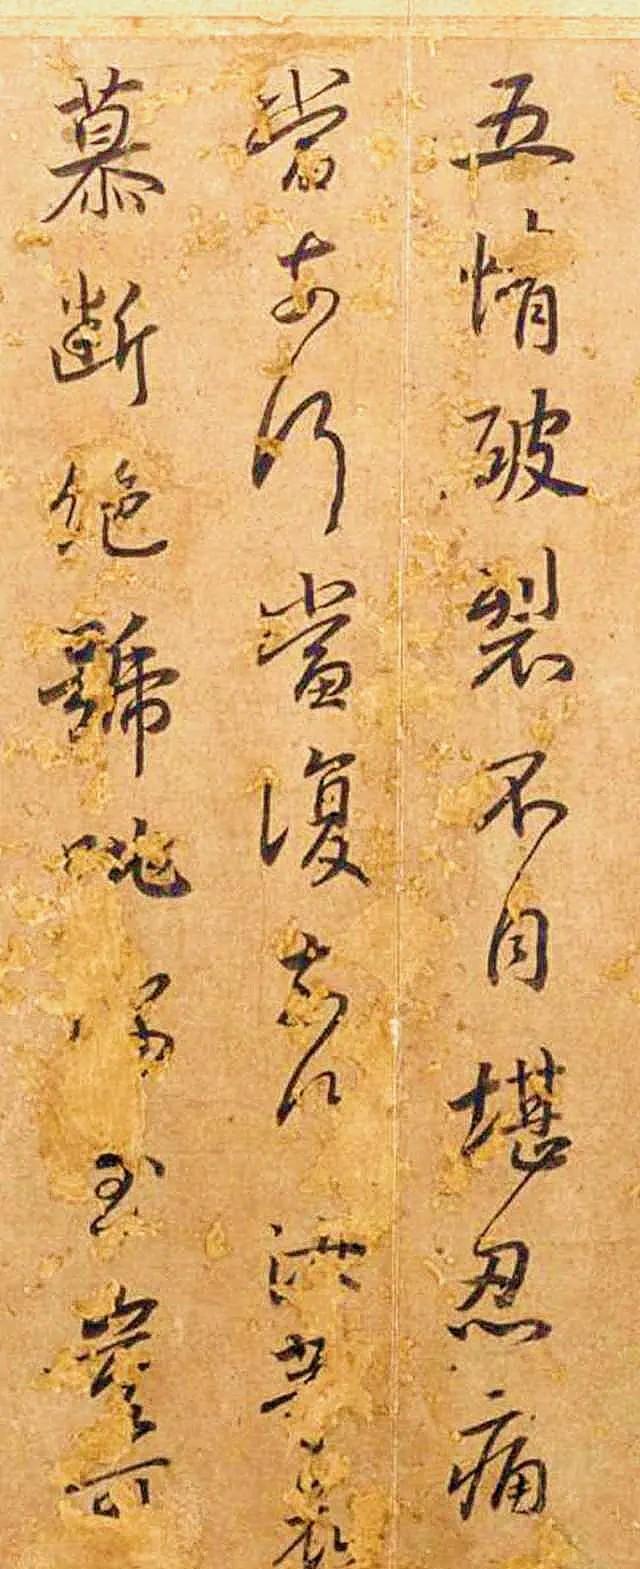 五情破裂不自堪忍痛
當奈何當復奈何汝等哀
慕斷絕號咷至豈可